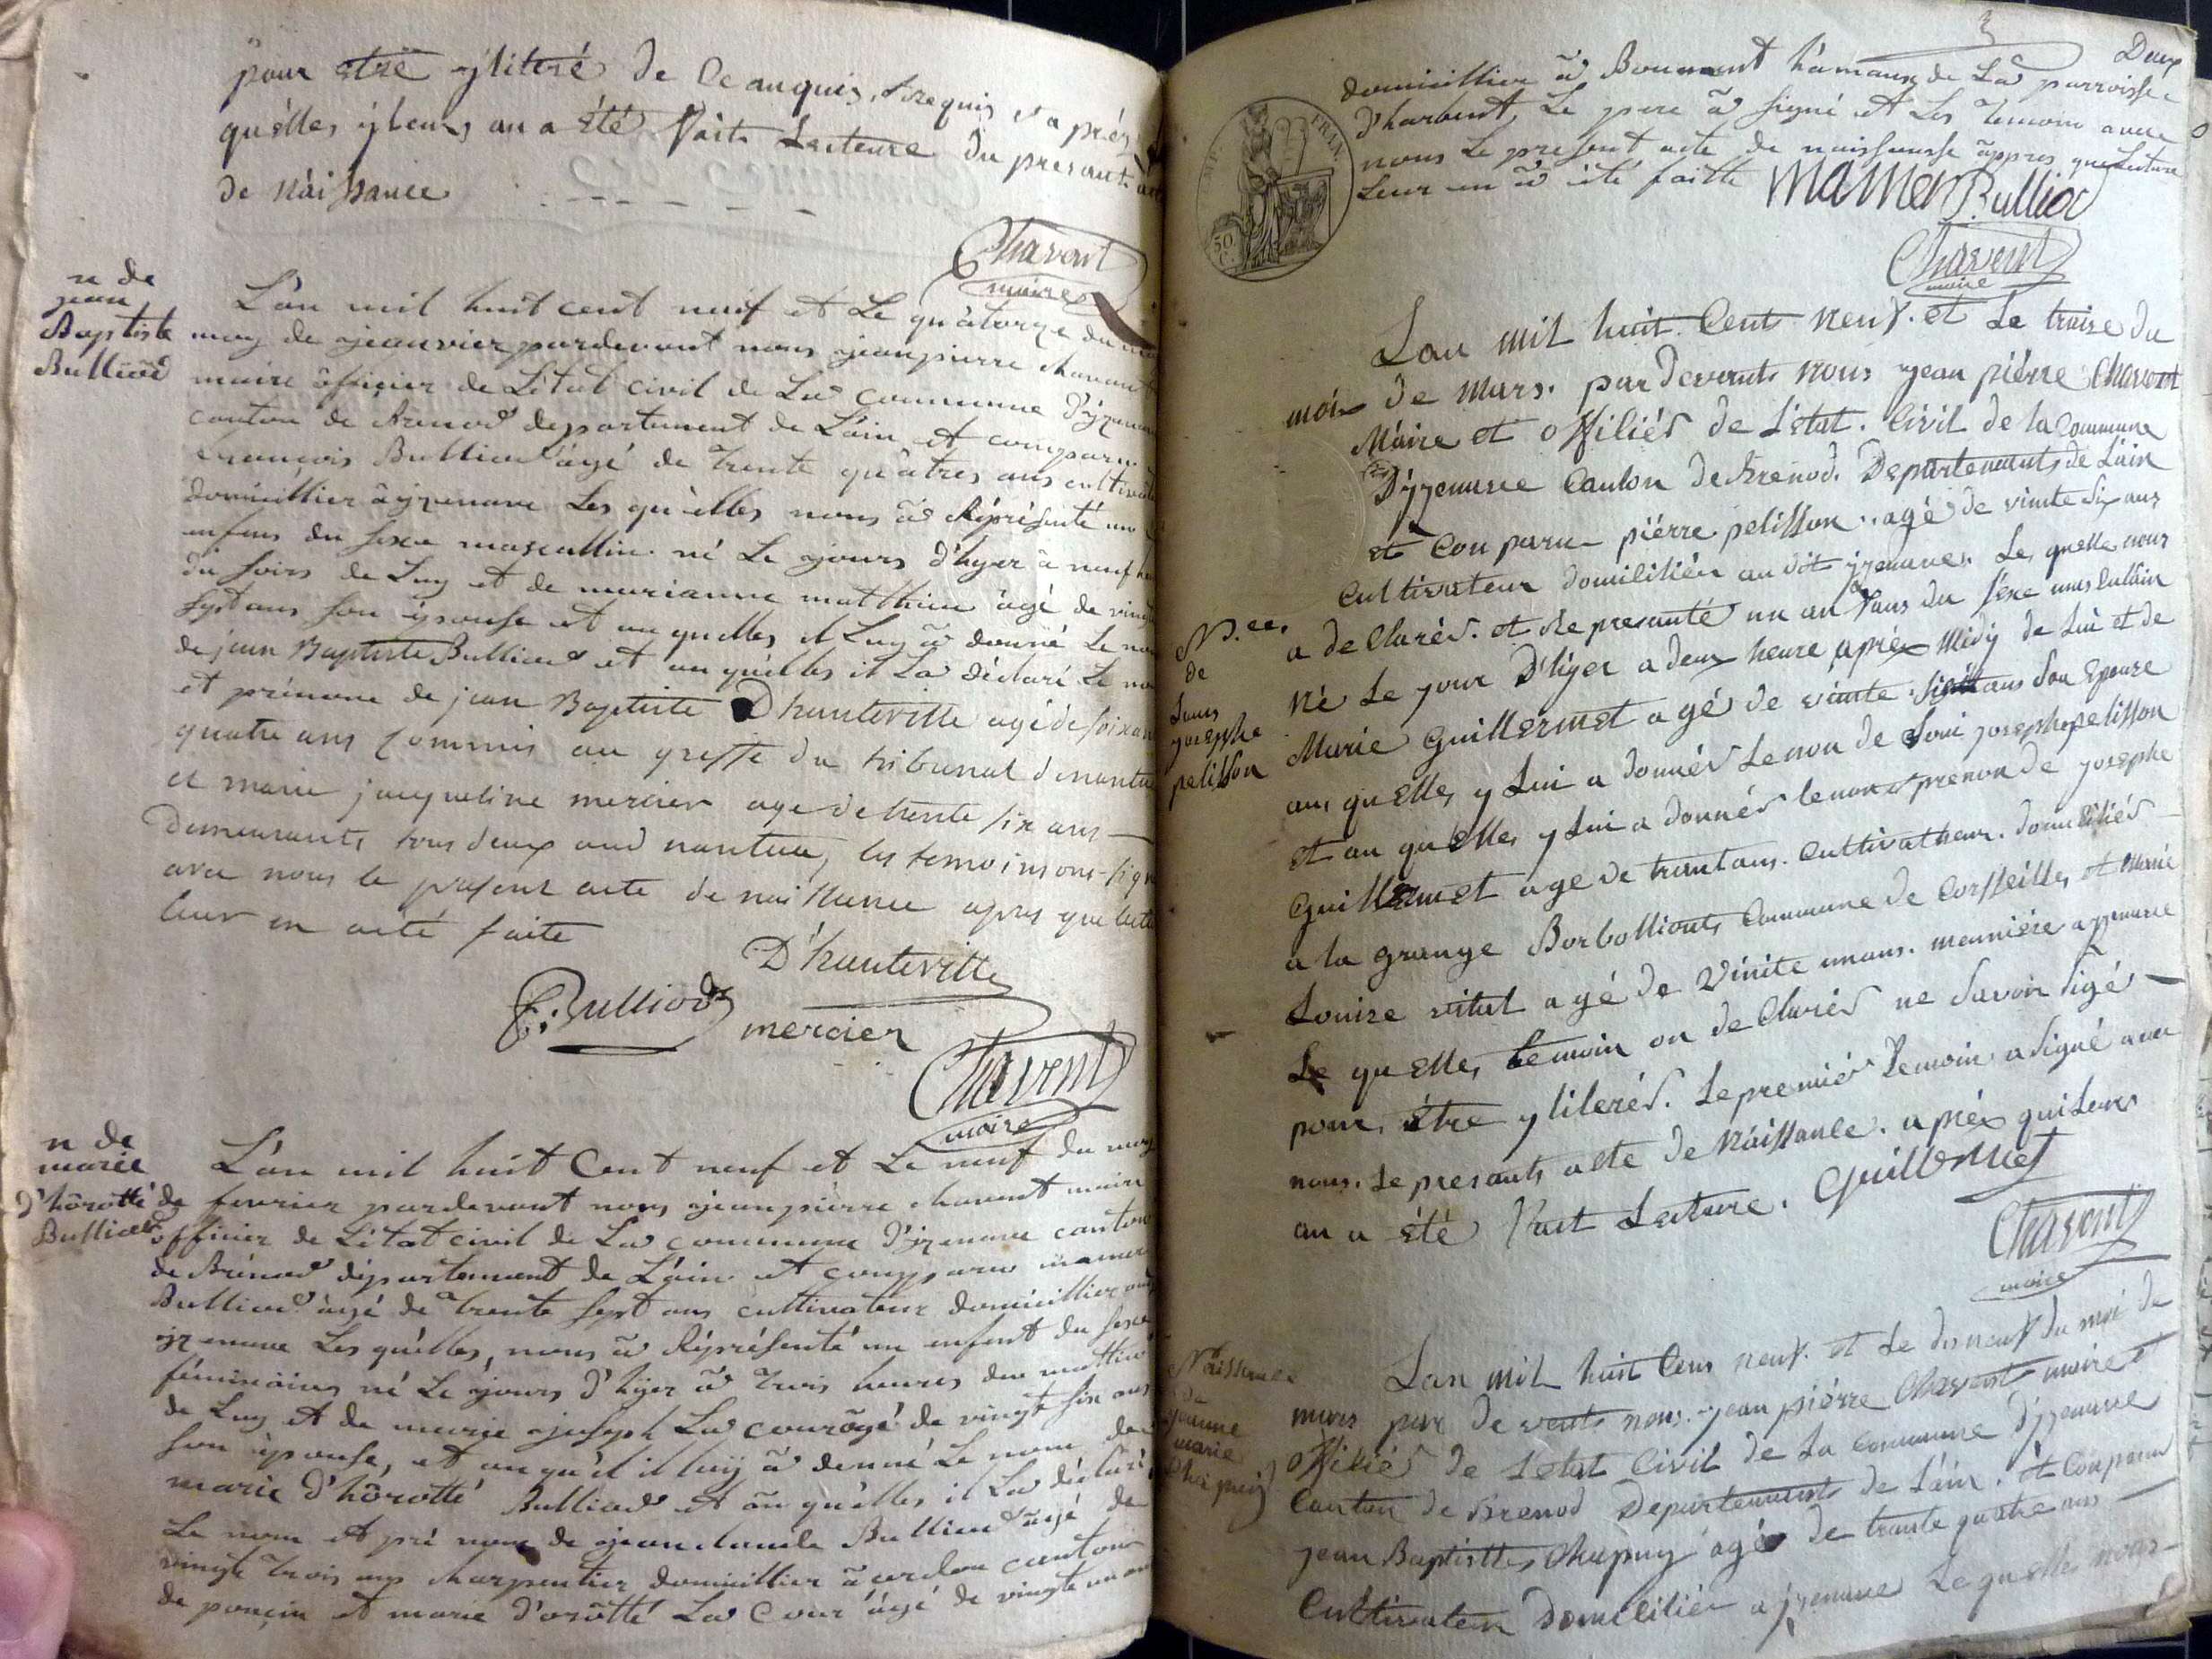 pour etre yliteré de ce anquis, trequis et a prés
qu'elles yleurs an a été faite Lecteure du presant acte
de Naissance
Chavent
maire
n de
jean
Baptiste
Bulliod
L'an mil huit cent neuf et Le quatorze du
moy de jeanvier pardevant nous jeanpierre chavant
maire officier de L'état civil de La commune d'izenave
canton de Brenod departement de L'ain et comparu
francois Bulliod âgé de trente quatres ans cultivateur
domicillier à izenave Les qu'elles nous a Répréssenté un
enfans du sexe mascullin né Le jours d'hyer à neuf
du soirs de Luy et de marianne matthieu âgé de vingt
sept ans son épouse et au quelles il Luy a donné Le nom
de jean Baptiste Bulliod et au quelles il La déclaré Le nom
et prénom de jean Baptiste D'hauteville agé de soixante
quatre ans commis au greffe du tribunal de nantua
et marie jacqueline mercier age de trente six ans
demeurants tous deux aud nantua, les temoins ont signé
avec nous le présent acte de naissance apres que lecture
leur en a été faite
D'hauteville
F. Bulliod
mercier
Chavent
maire
n de
marie
d'hôrotté
Bulliod
L'an mil huit Cent neuf et Le neuf du moy
de fevrier pardevant nous jeanpierre chavent maire
officier de L'état civil de La commune d'izenave canton
de Brénod département de L'ain et compparu mamer
Bulliod âgé de trente sept ans cultivateur domicillier aud
izenave Les qu'elles, nous a Répréssenté un enfent du sexe
féminains né Le jours d'hyer à trois heures du mattin
de Luy et de marie joseph La cour âgé de vingt six ans
son épouse, et au qu'el il luy a donné Le nom de
marie d'hôrotté Bulliod et au qu'elles il La déclaré
Le nom et pré nom de jean claude Bulliod âgé de
vingte trois ans charpentier domicillier à cerdon canton
de poncin et marie d'orôtté La Cour âgé de vingte un ans
3
Deux
domicillier à Boument hâmaux de La parroisse
d'harbent, Le pere a signé et Les temoin avec
nous Le present acte de naissansse appres que Lecture
Leur en a été faitte
mamer Bulliod
Chavent
maire
EMP. FRAN.
50 C.
Lan mil huit Cents neuf. et Le traise du
mois de mars. par devents nous jean piérre Chavent
Maire et offiliér de L'etat. Civil de la Commune
D'izenave Canton de Brenod. Departements de L'ain
et Conparu piérre pelisson. agé de vinte six ans
Cultivateur domiliciér au dit izenave. Les quelle nous
a declarér. et Represanté un an fans du sexe masculain
Né Le jour D'hyer a deux heure apréx Midy de Lui et de
Marie Guillermet agé de vinte six ans son Epouse
au quelles y Lui a donnér Le non de Loui josephe pelisson
et au quelles y Lui a donnér le non et prenon de josephe
Guillermet age de trantans. Cultivatheur. domiliciér
a la grange Borbollionts Commune de Corsseilles et Marie
Louise vital agé de Vinite unans. mennière a izenave
Le quelles temoin on declarér ne Savoir sigé
pour être yliterér. Le premiér temoin a signé avec
nous. Le presants acte de Naissance. apréx qui Leurs
an a été fait Lecture. Guillermet
Chavent
maire
N.ce
de
Louis
josephe
pelisson
Naissance
de
jeanne
marie
Chapuy
Lan mil huit Cens neuf. et Le dis neuf du moi de
mars par devents nous. jean piérre Chavent maire et
offiliér de L'etat Civil de La Commune d'izenave
Canton de Brenod Departements de L'ain. et Conparu
jean Baptistte Chapuy agé de trante quatre ans
Cultivateur Domiciliér a izenave Le quelle nous